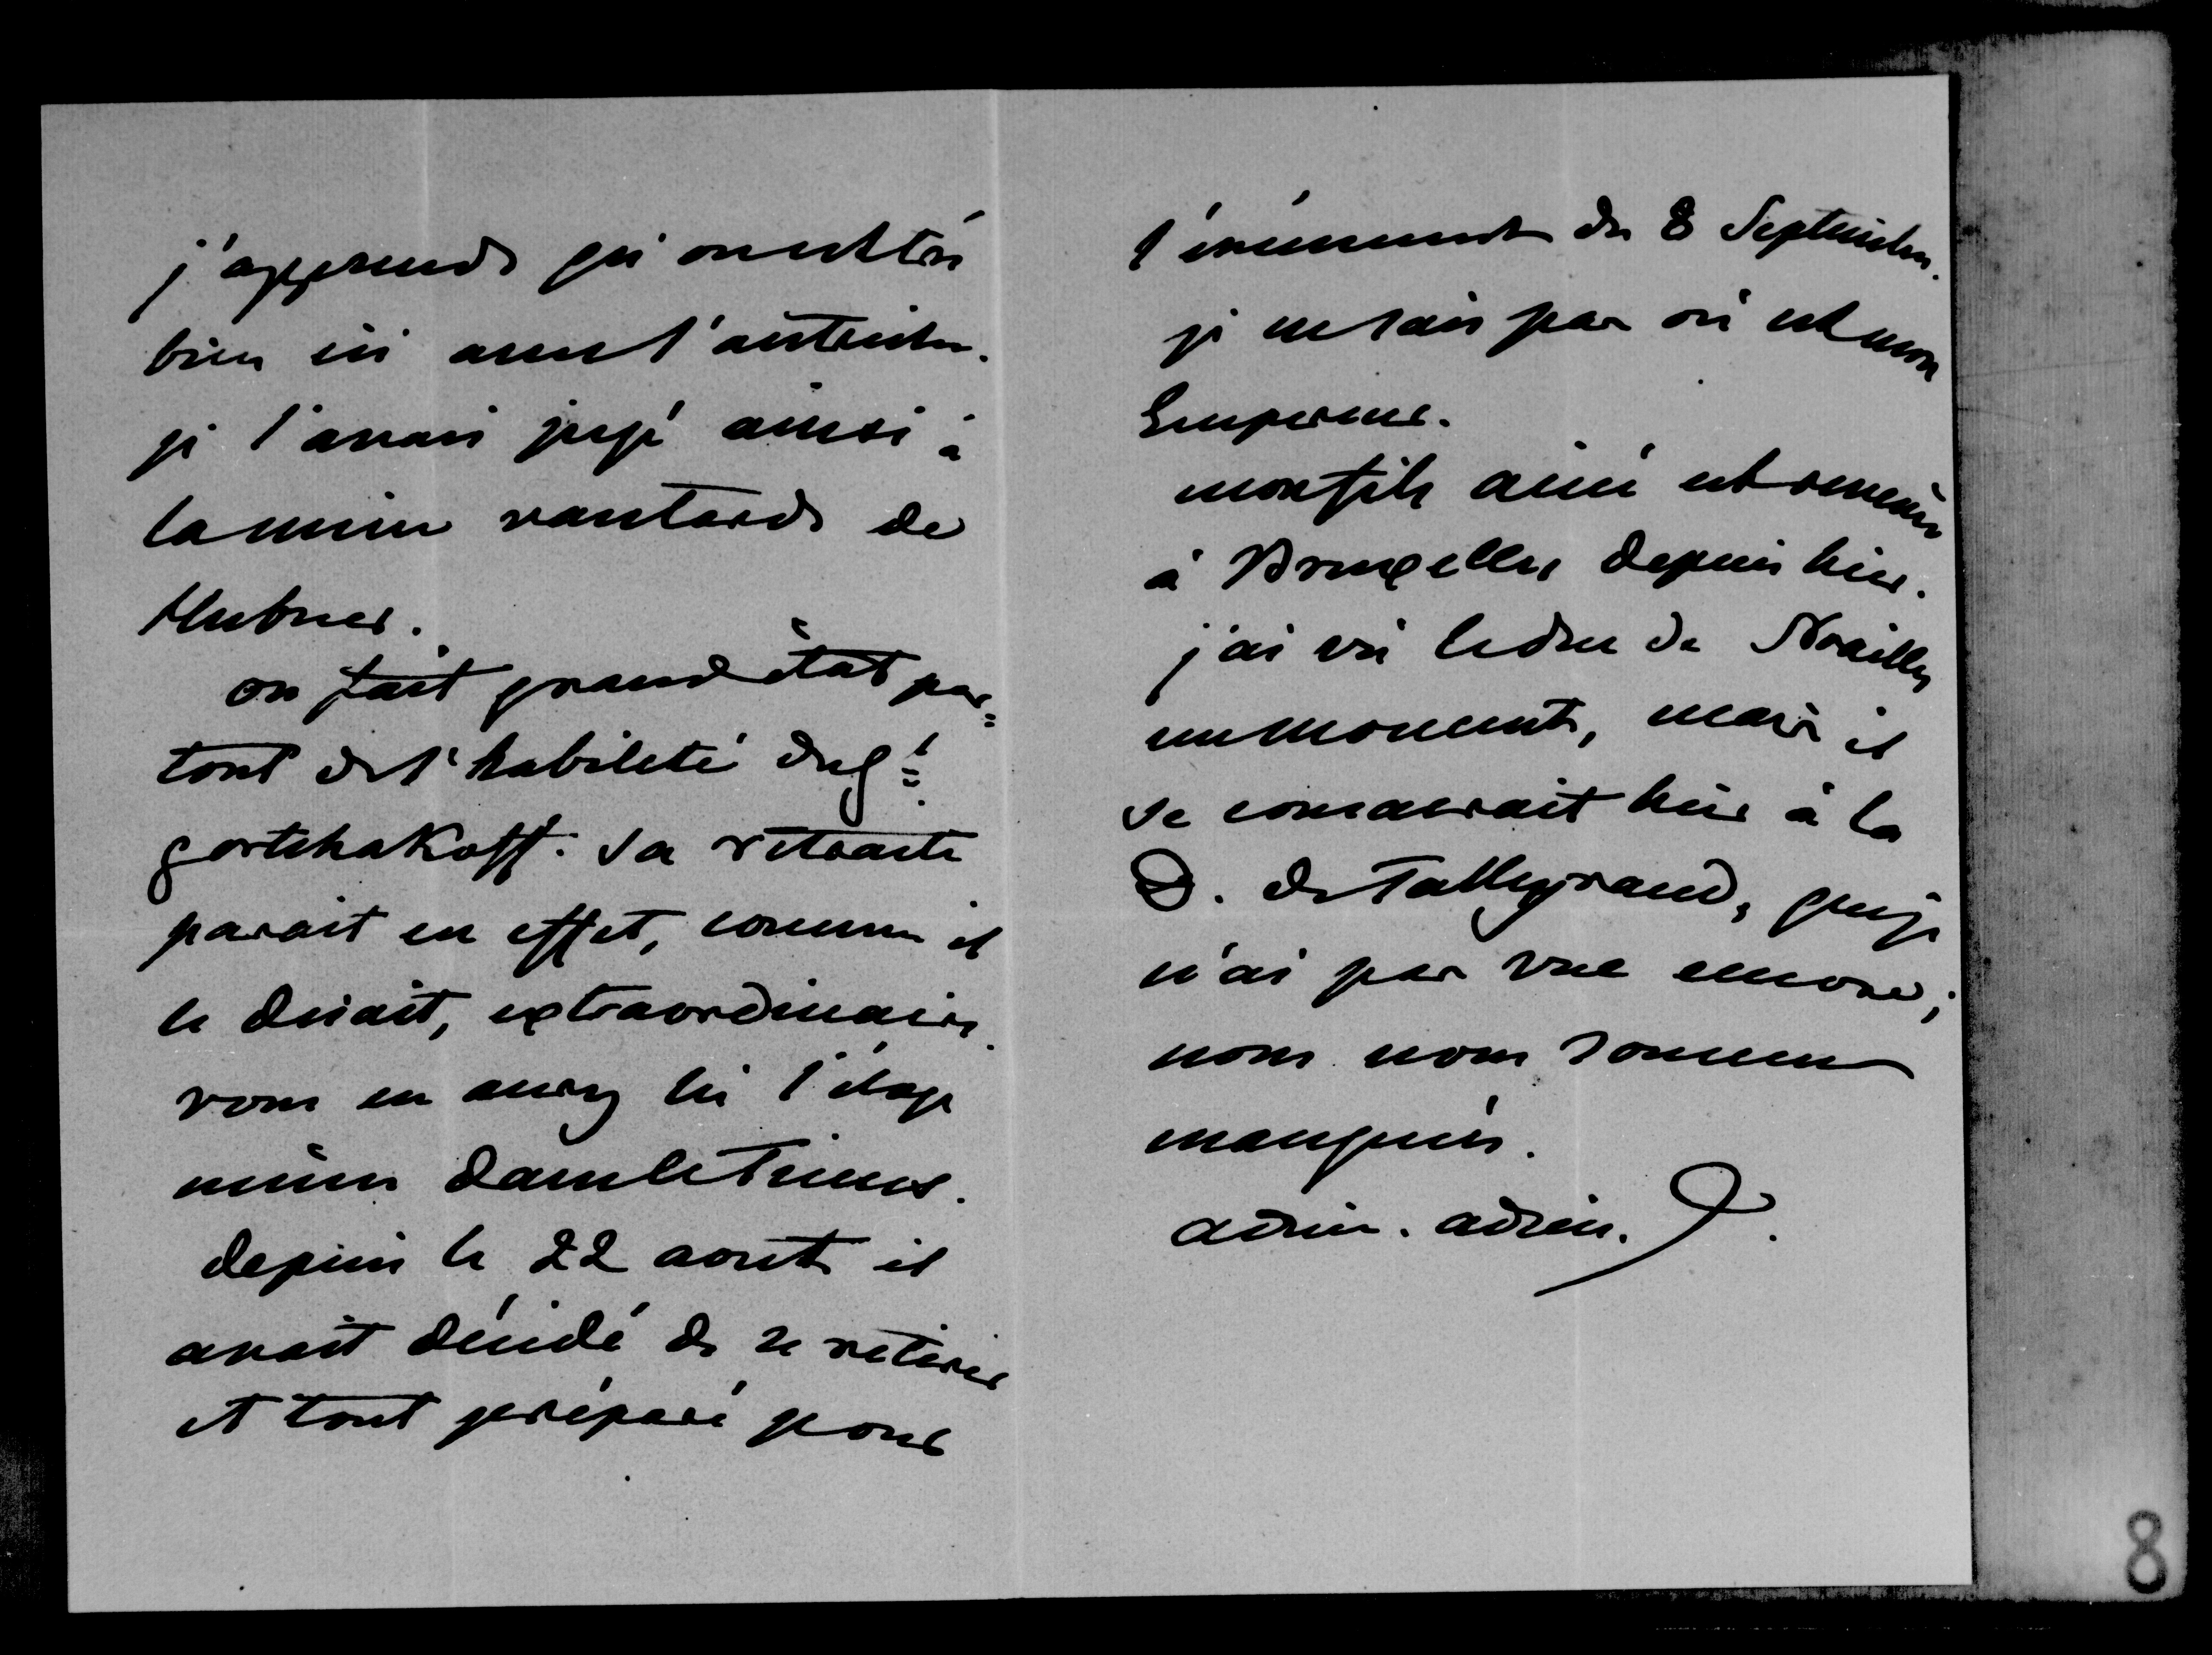 j'apprends qu'on est très
bien ici avec l'autriche.
je l'avais jugé ainsi à
la mine vantarde de
Hubner.
on fait grand état par=
tout de l'habileté du gl
gortchakoff. Sa retraite
parait en effet, comme il
le disait, extraordinaire.
vous en aurez lu l'éloge
même dans le Times.
depuis le 22 aout il
avait décidé de se retirer
et tout préparé pour
l'évènement du 8 Septembre.
je ne sais pas où est mon
Empereur.
mon fils ainé est revenu
à Bruxelles depuis hier.
j'ai vu le duc de Noailles
un moment, mais il
se consacrait hier à la
D. de Talleyrand, que je
n'ai pas vue encore;
nous nous sommes
manquées.
adieu. adieu.
8